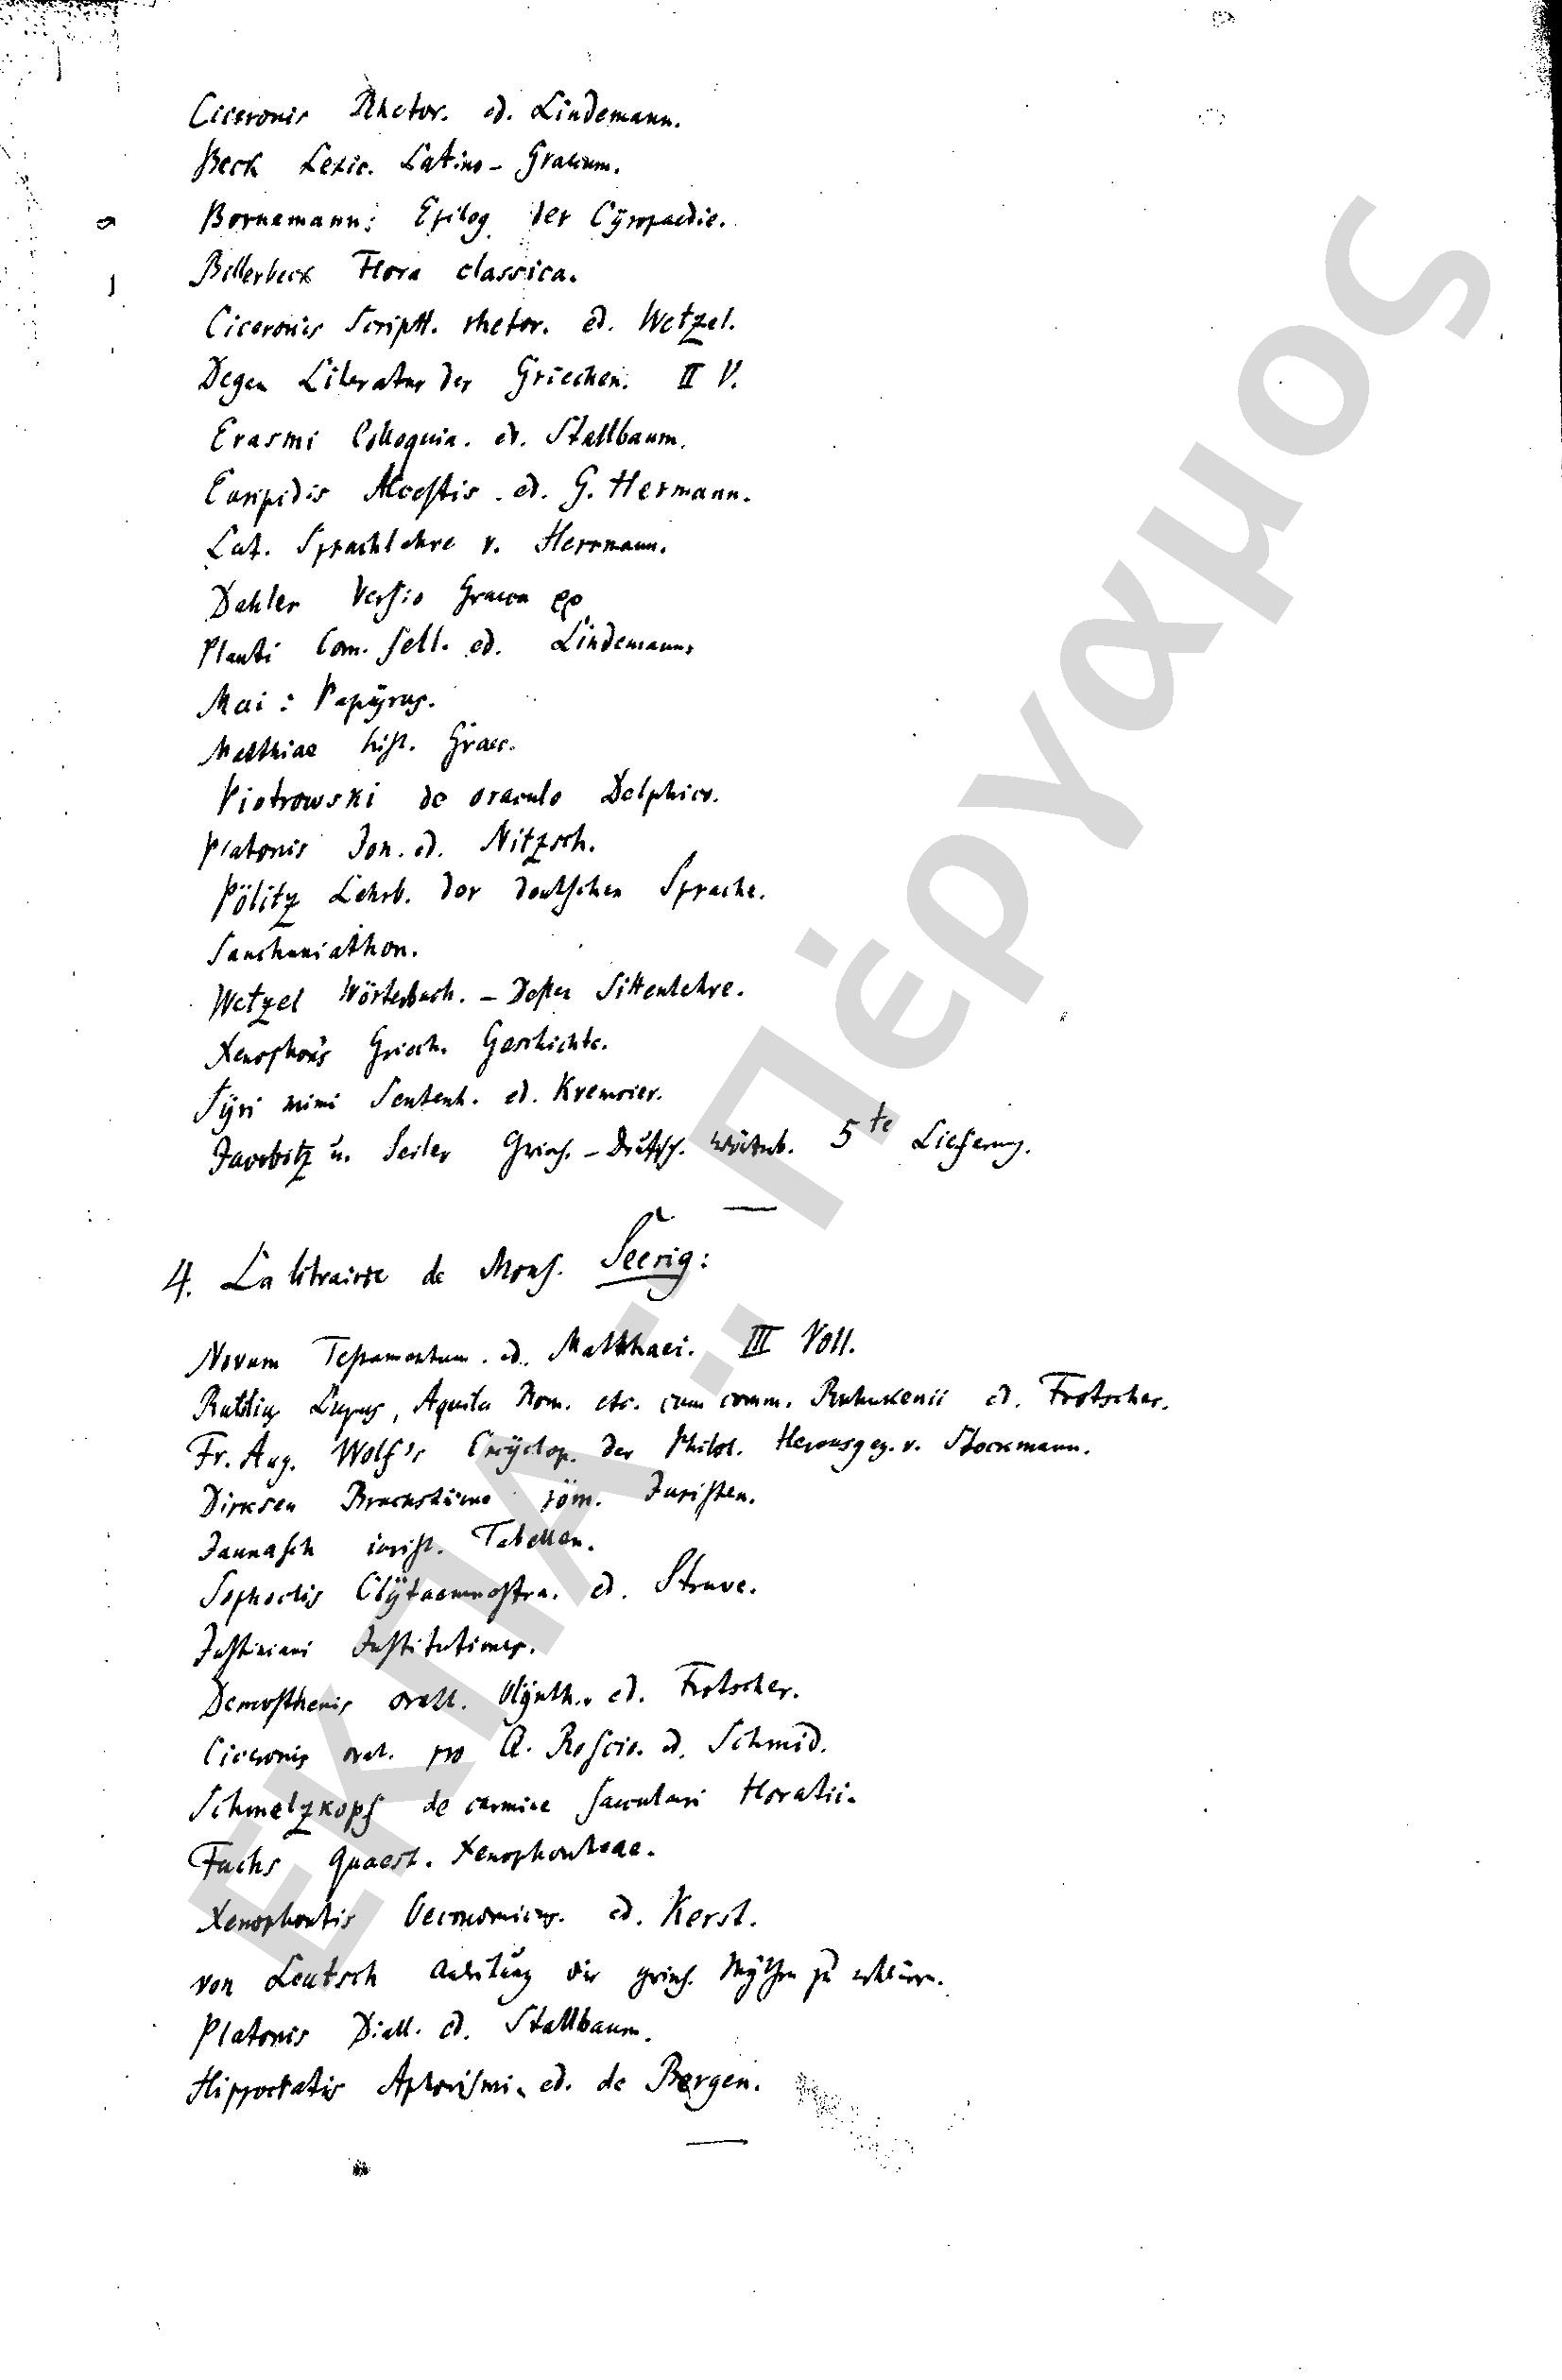 Ciceronis Rhetor. ed. Lindemann.
Beck Lexic. Latino-Graecum.
Bornemann: Epilog der Cÿropaedie.
Billerbeck Flora classica.
Ciceronis Scriptt. rhetor. ed. Wetzel.
Degen Literatur der Griechen. II V.
Erasmi Colloquia. ed. Stallbaum.
Euripidis Alcestis. ed. G. Hermann.
Lat. Sprachlehre v. Herrmann.
Dahler Versio Graeca
Plauti Com. sell. ed. Lindemann.
Mai: Papÿrus.
Matthiae hist. Graec.
Piotrowski de oraculo Delphico.
Platonis Jon. ed. Nitzsch.
Pölitz Lehrb. der deutschen Sprache.
Sanchuniathon.
Wetzel Wörterbuch. – Dessen Sittenlehre.
Xenophon's Griech. Geschichte.
Sÿri mimi Sentent. ed. Kremsier.
Jacobitz u. Seiler Griech.-Deutsch. Wörterb. 5te Lieferung.
4. La librairie de Mons. Seerig:
Novum Testamentum. ed. Matthaei. III Voll.
Rutilius Lupus, Aquila Rom. etc. cum comm. Ruhnkenii ed. Frotscher.
Fr. Aug. Wolf's Encÿclop. der Philol. Herausgeg. v. Stockmann.
Dirksen Bruchstücke röm. Juristen.
Jannasch iurist. Tabellen.
Sophoclis Clÿtaemnestra. ed. Struve.
Justiniani Institutiones.
Demosthenis oratt. Olÿnth. ed. Frotscher.
Ciceronis orat. pro Q. Roscio. ed. Schmid.
Schmelzkopf de carmine saeculari Horatii.
Fuchs quaest. Xenophonteae.
Xenophontis Oeconomicus. ed. Kerst.
von Leutsch Anleitung die griech. Mÿthen zu erklären.
Platonis Diall. ed. Stallbaum.
Hippocratis Aphorismi. ed. de Bergen.
ΕΚΠΑ :: Πέργαμος